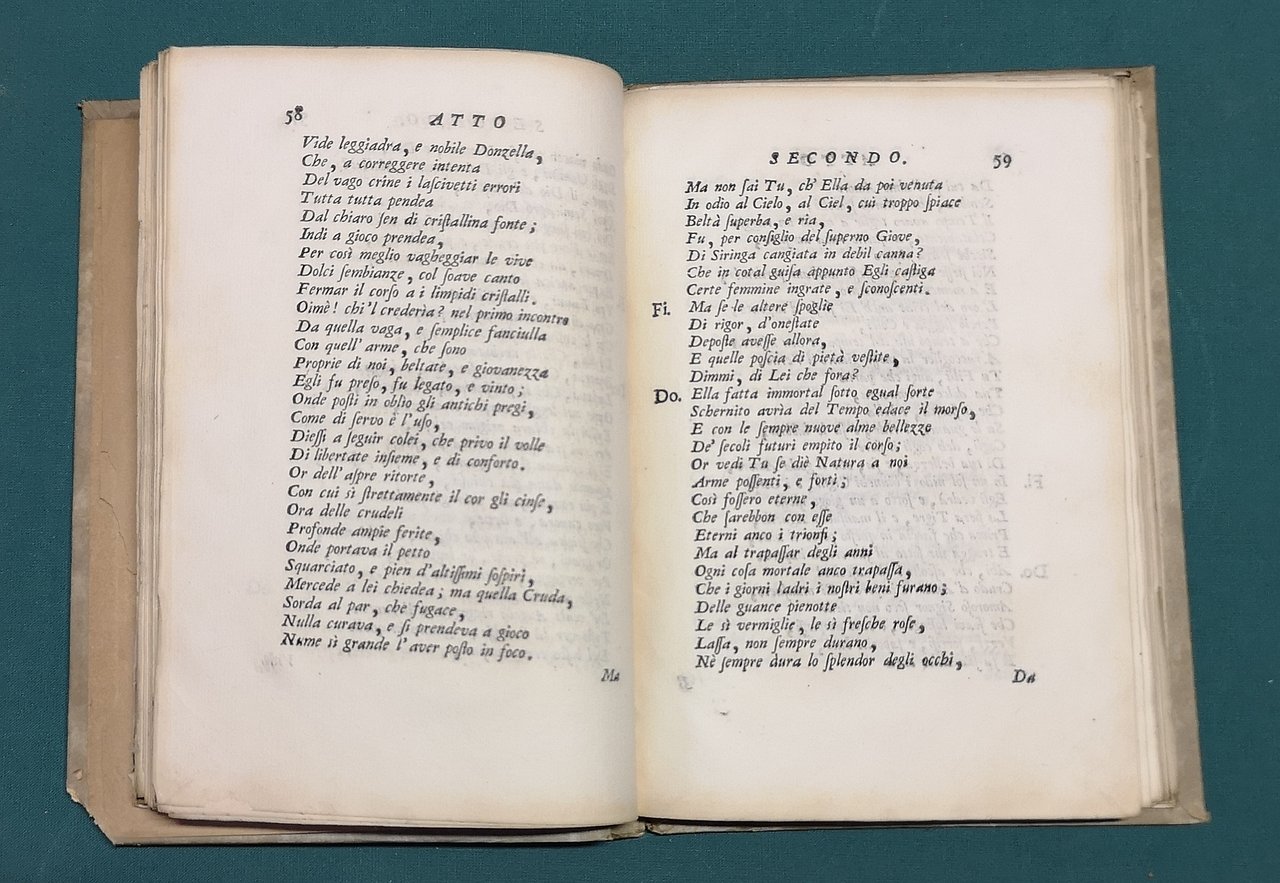 58 ATTO
Vide leggiadra, e nobile Donzella,
Che, a correggere intenta
Del vago crine i laſcivetti errori
Tutta tutta pendea
Dal chiaro ſen di criſtallina fonte;
Indi a gioco prendea,
Per così meglio vagheggiar le vive
Dolci ſembianze, col ſoave canto
Fermar il corſo a i limpidi criſtalli.
Oimè! chi'l crederìa? nel primo incontro
Da quella vaga, e ſemplice fanciulla
Con quell' arme, che ſono
Proprie di noi, beltate, e giovanezza
Egli fu preſo, fu legato, e vinto;
Onde poſti in oblìo gli antichi pregi,
Come di ſervo è l'uſo,
Dieſſi a ſeguir colei, che privo il volle
Di libertate inſieme, e di conforto.
Or dell' aſpre ritorte,
Con cui sì ſtrettamente il cor gli cinſe,
Ora delle crudeli
Profonde ampie ferite,
Onde portava il petto
Squarciato, e pien d'altiſſimi ſoſpiri,
Mercede a lei chiedea; ma quella Cruda,
Sorda al par, che fugace,
Nulla curava, e ſi prendeva a gioco
Nume sì grande l'aver poſto in foco.
Ma
SECONDO. 59
Ma non ſai Tu, ch' Ella da poi venuta
In odio al Cielo, al Ciel, cui troppo ſpiace
Beltà ſuperba, e ria,
Fu, per conſiglio del ſuperno Giove,
Di Siringa cangiata in debil canna?
Che in cotal guiſa appunto Egli caſtiga
Certe femmine ingrate, e ſconoſcenti.
Fi. Ma ſe le altere ſpoglie
Di rigor, d'oneſtate
Depoſte aveſſe allora,
E quelle poſcia di pietà veſtite,
Dimmi, di Lei che fora?
Do. Ella fatta immortal ſotto egual ſorte
Schernito avrìa del Tempo edace il morſo,
E con le ſempre nuove alme bellezze
De' ſecoli futuri empito il corſo;
Or vedi Tu ſe diè Natura a noi
Arme poſſenti, e forti;
Così foſſero eterne,
Che ſarebbon con eſſe
Eterni anco i trionfi;
Ma al trapaſſar degli anni
Ogni coſa mortale anco trapaſſa,
Che i giorni ladri i noſtri beni furano;
Delle guance pienotte
Le sì vermiglie, le sì freſche roſe,
Laſſa, non ſempre durano,
Nè ſempre dura lo ſplendor degli occhi,
Da